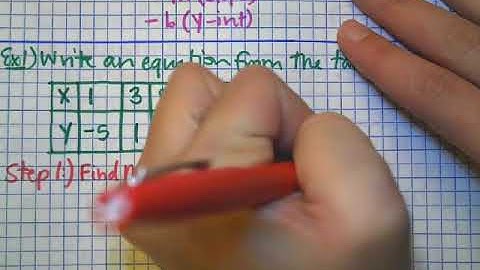 - b (y-int)
Ex1) Write an equation from the
X 1 3
Y -5 1
Step 1:) Find